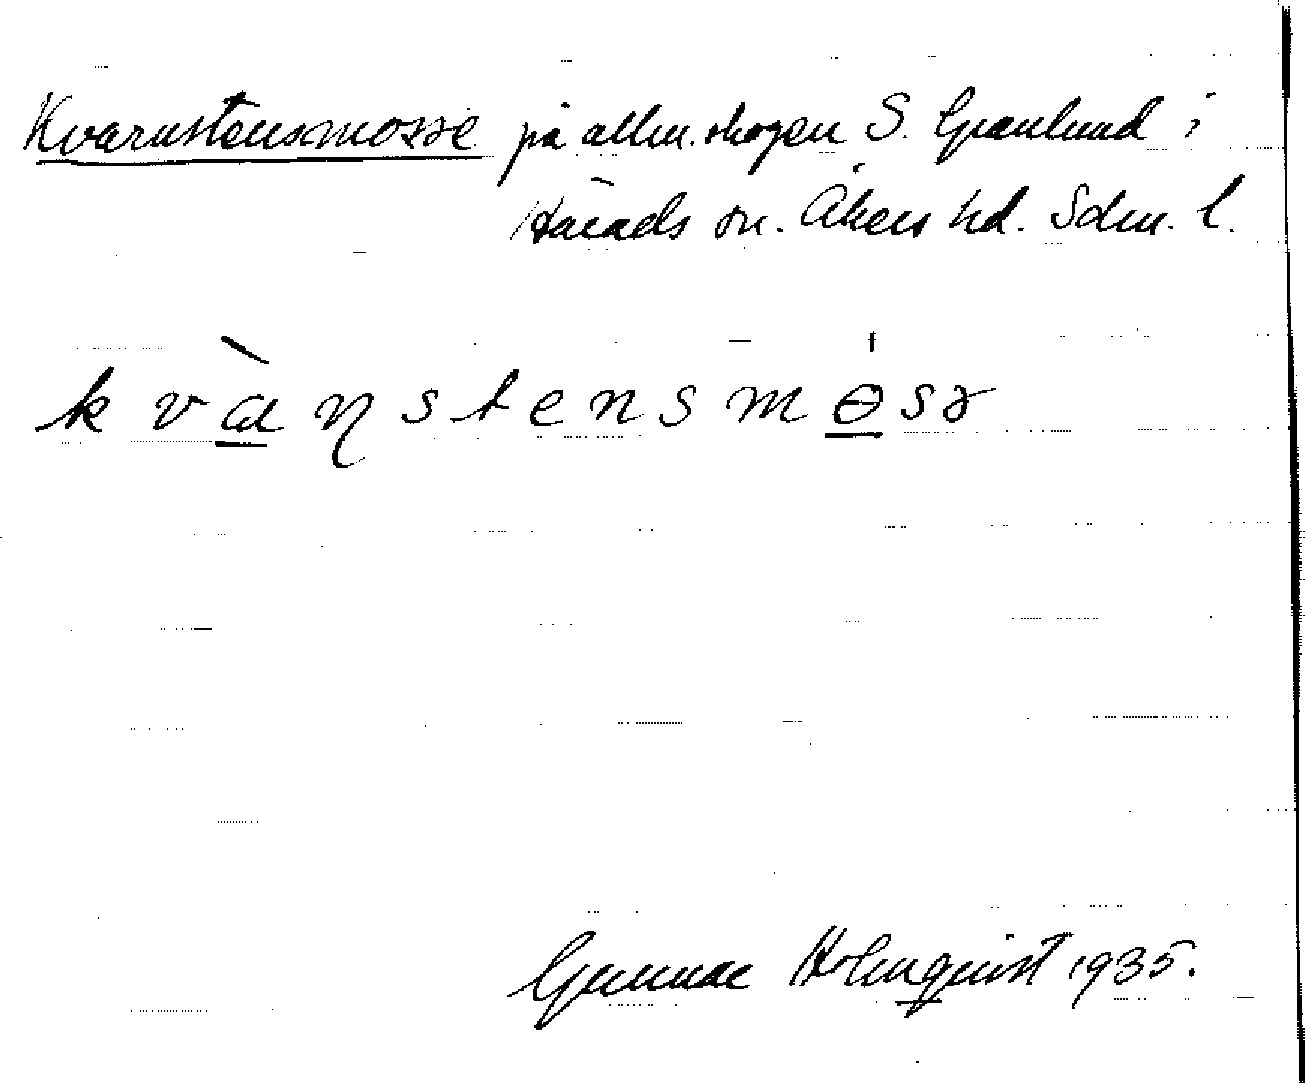 Kvarnstensmosse på allm. skogen S. Granlund i
Härads sn. Åkers hd. Sdm. l.
kvàɳstensmɵsɤ
Gunnar Holmquist 1935.